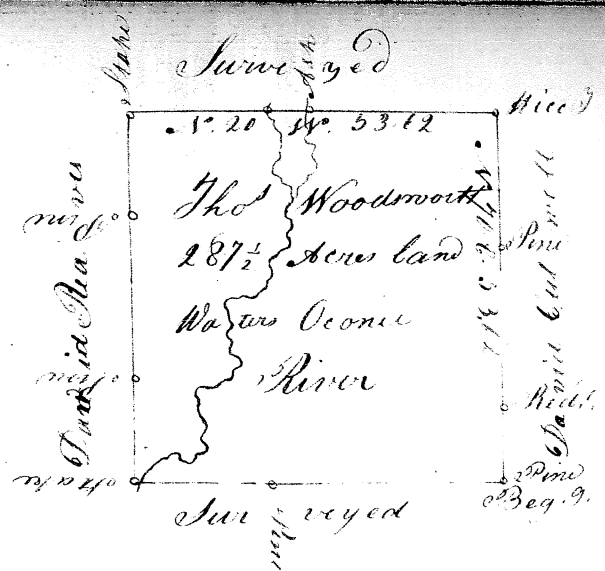 Stake
Surveyed
Ash
Hicc^y
N. 20 W. 53.62
Pine
Tho^s Woodsworth
287½ Acres land
Waters Oconee
River
David Reaves
Pine
Stake
N 70 E 53.62
Pine
David Culwell
Red
Pine
Beg.g.
Surveyed
Pine